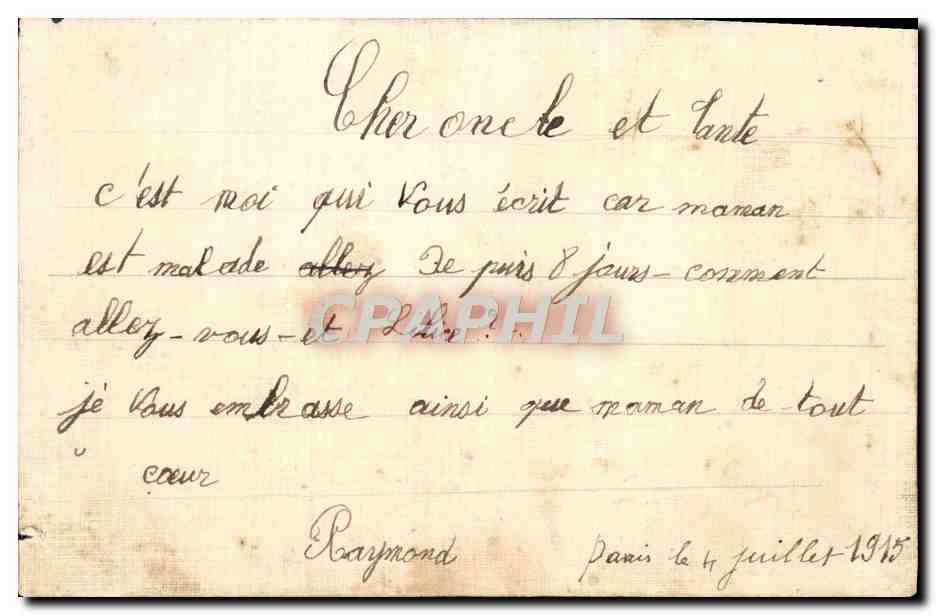 Cher oncle et tante
c'est moi qui vous écrit car maman
est malade allez De puis 8 jours - comment
allez - vous - et ?
je vous embrasse ainsi que maman de tout
cœur
Raymond Paris le 4 juillet 1915
CPAPHIL